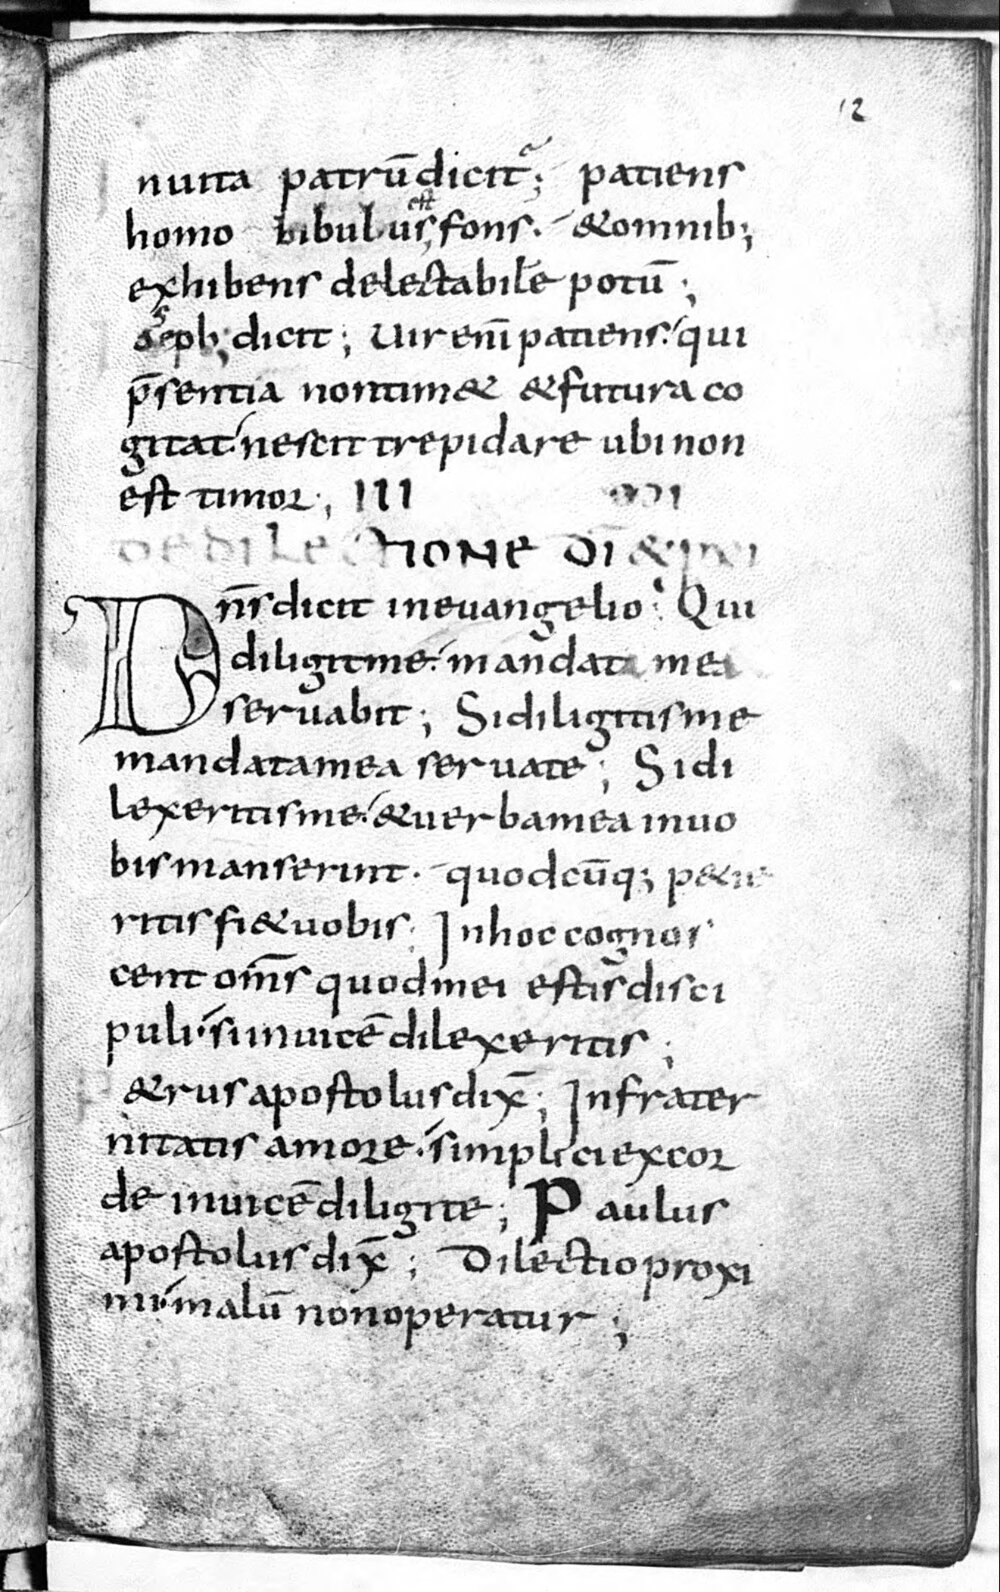 12
nuita patrū dicit̃; patiens
homo bibulus, est fons. & omnib;
exhibens delectabile potū;
Ioseph; dicit; Uir enī patiens. qui
p̄sentia non tim& & futura co
gitat. nescit trepidare ubi non
est timor; III
DE DILECTIONE DĪ & P̄XI
Dn̄s dicit in euangelio. Qui
diligit me. mandata mea
seruabit; Si diligitis me
mandata mea seruate; Si di
lexeritis me. & uerba mea in uo
bis manserint. quodcūq; p&ie
ritis fi& uobis. In hoc cognos
cent om̄s quod mei estis disci
puli. si inuicē dilexeritis;
P&rus apostolus dix̄; In frater
nitatis amore. simplici ex cor
de inuicē diligite; Paulus
apostolus dix̄; Dilectio proxi
mi. malū non operatur;